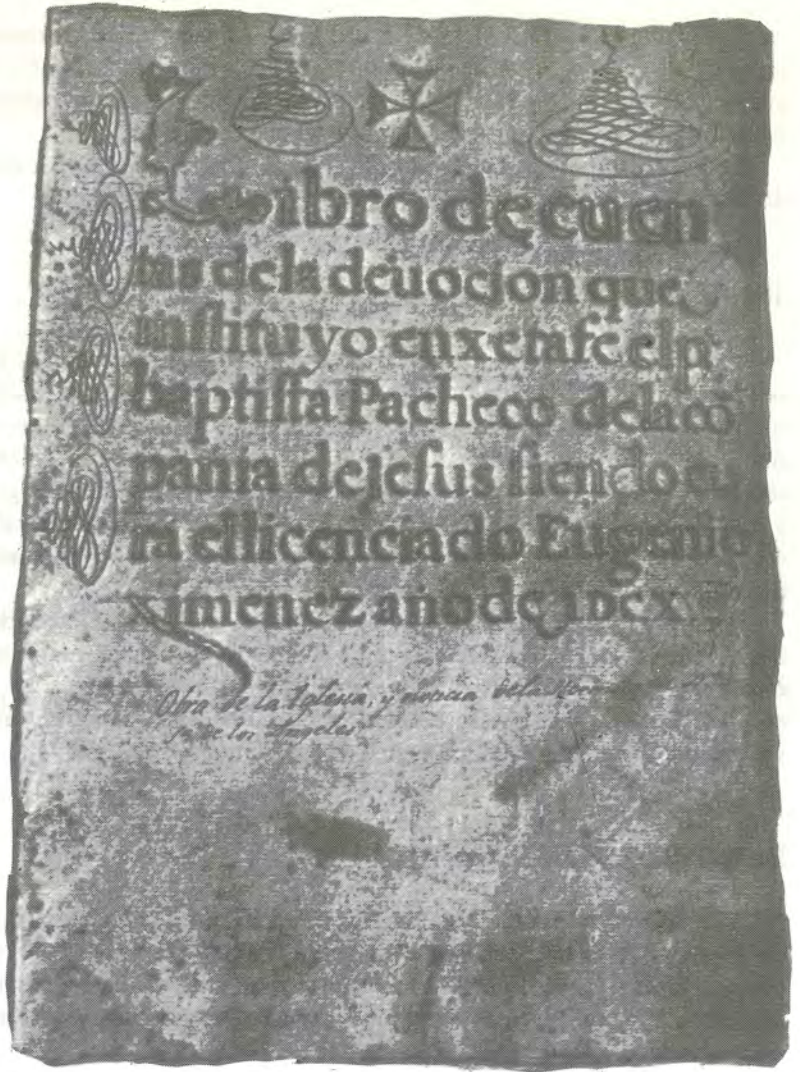 Libro de cuen
tas dela deuocion que
instituyo en xetafe el p
baptista Pacheco dela cõ
pania de jesus siendo cu
ra el licenciado Eugenio
ximenez año de
Obra de la Iglesia, y noticia dela
de los Angeles